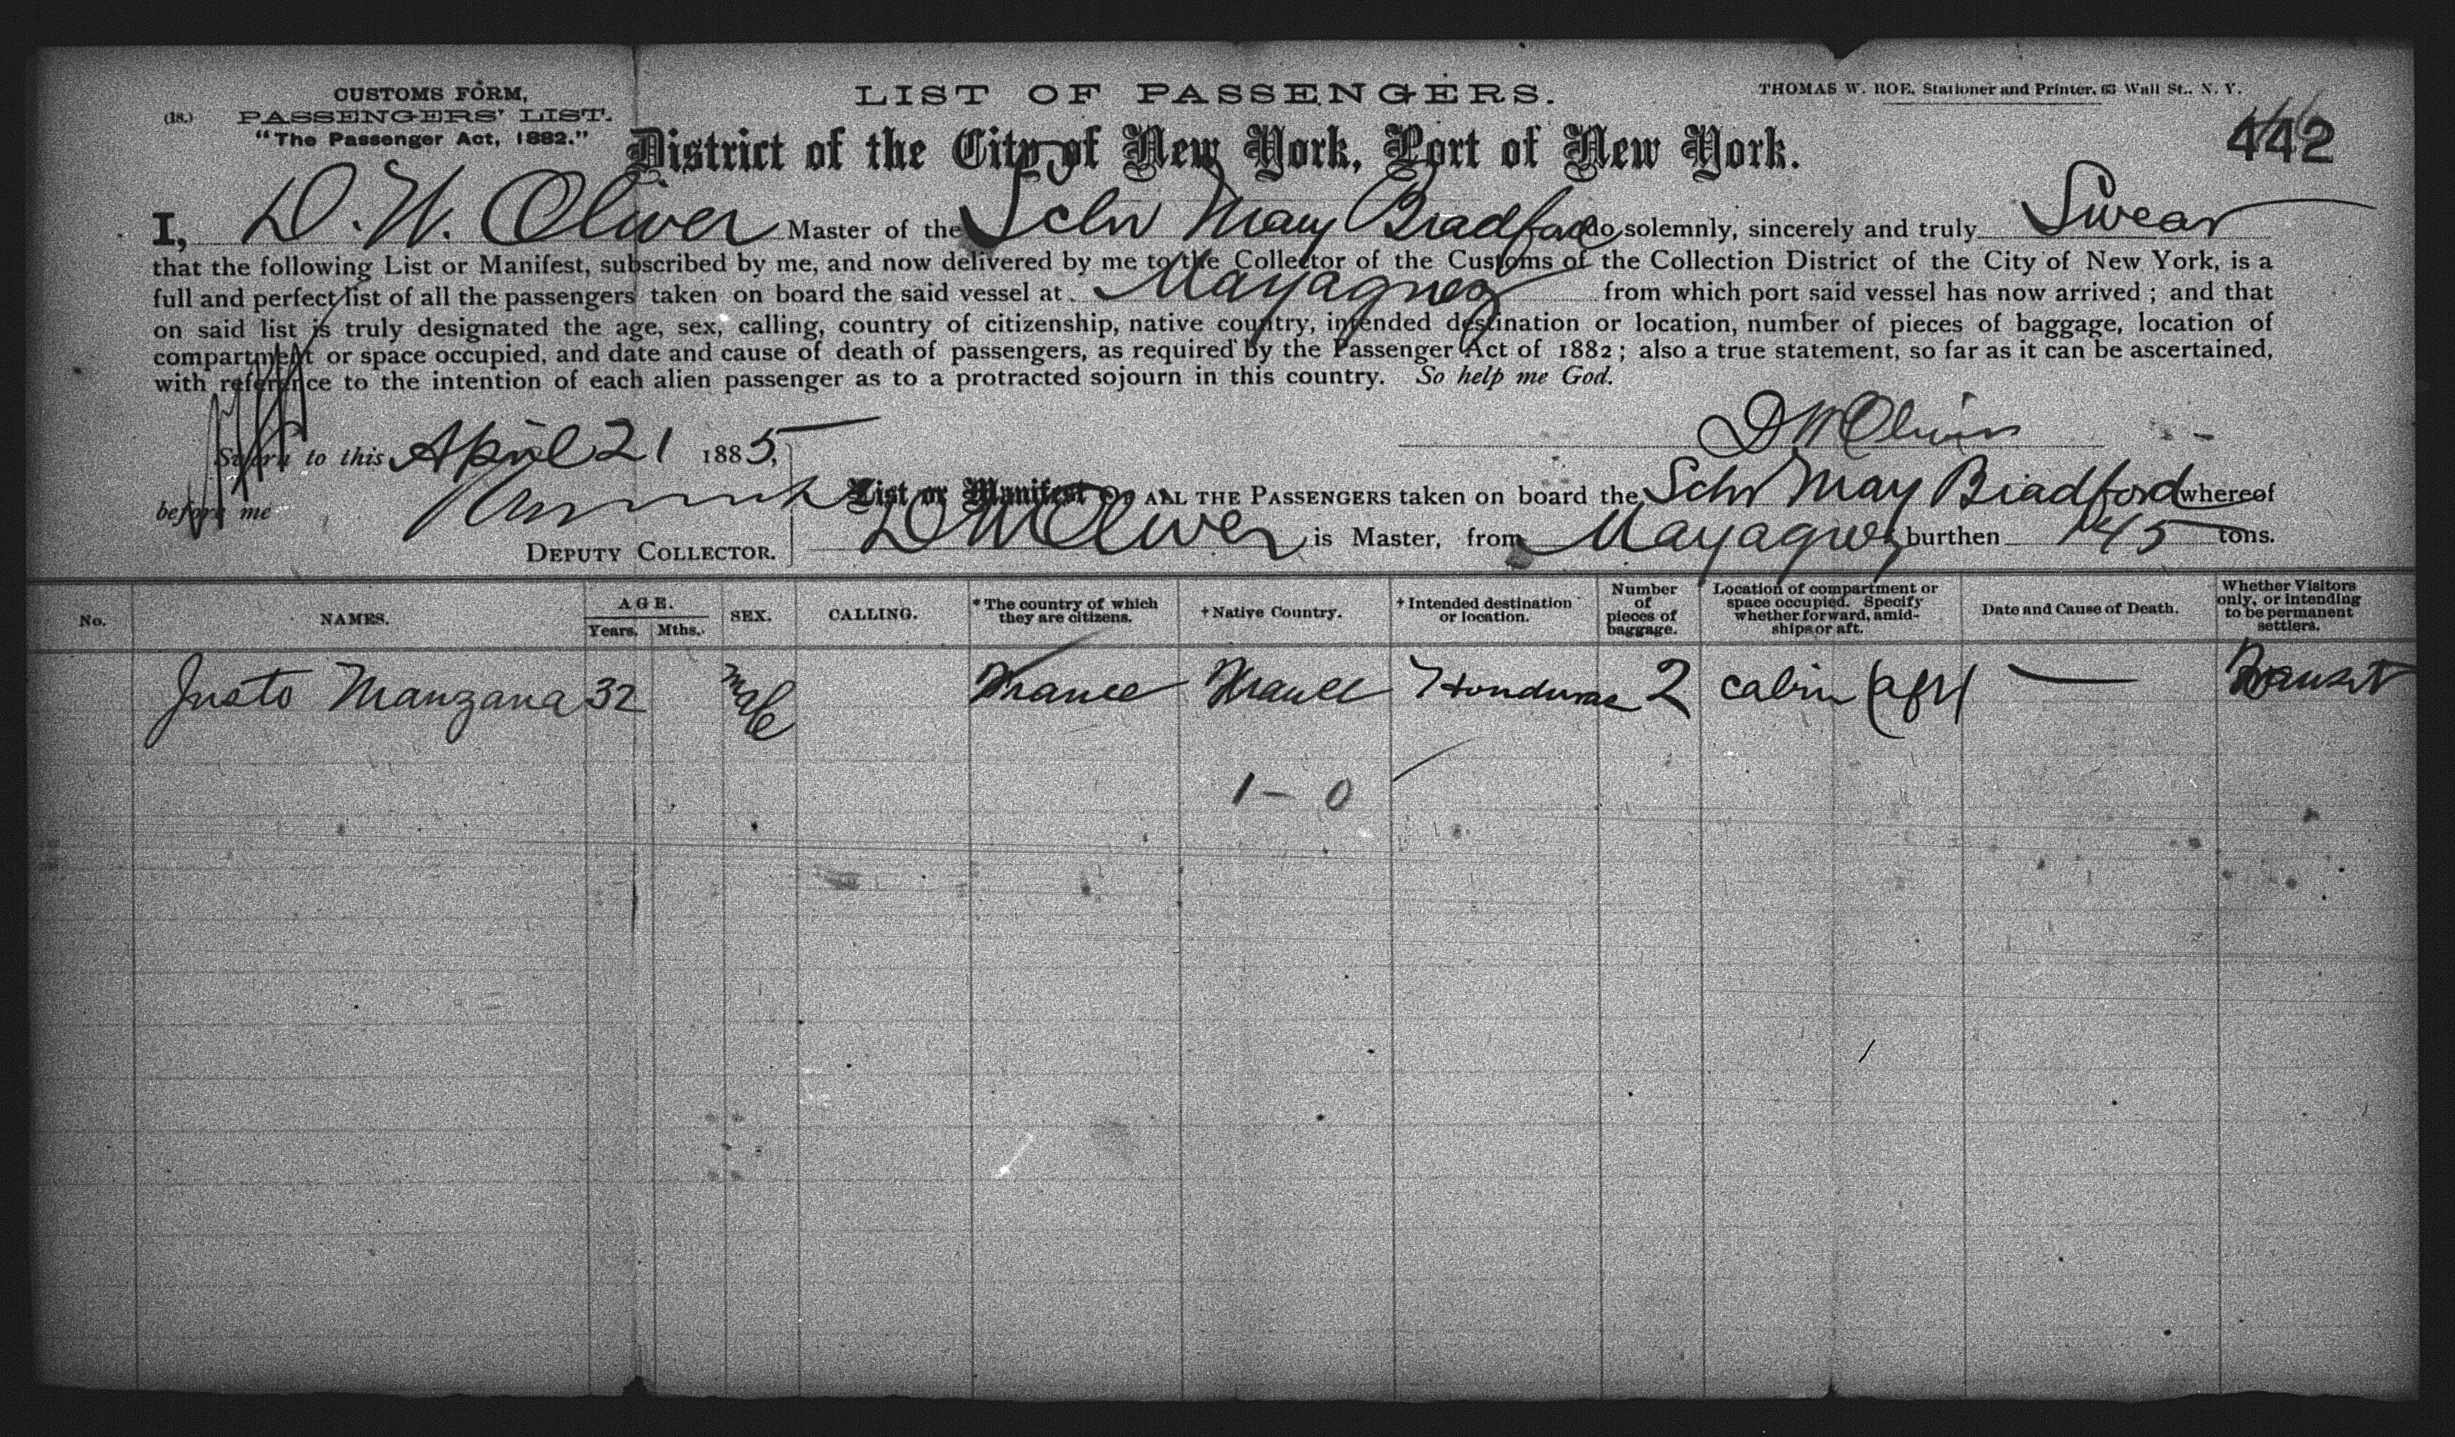 CUSTOMS FORM,
(18.) PASSENGERS' LIST.
"The Passenger Act, 1882."
LIST OF PASSENGERS.
THOMAS W. ROE, Stationer and Printer, 63 Wall St., N. Y.
District of the City of New York, Port of New York.
442
I, D. W. Oliver Master of the Schr Mary Bradford do solemnly, sincerely and truly Swear
that the following List or Manifest, subscribed by me, and now delivered by me to the Collector of the Customs of the Collection District of the City of New York, is a
full and perfect list of all the passengers taken on board the said vessel at Mayaguez from which port said vessel has now arrived; and that
on said list is truly designated the age, sex, calling, country of citizenship, native country, intended destination or location, number of pieces of baggage, location of
compartment or space occupied, and date and cause of death of passengers, as required by the Passenger Act of 1882; also a true statement, so far as it can be ascertained,
with reference to the intention of each alien passenger as to a protracted sojourn in this country. So help me God.
D W Oliver
Sworn to this April 21 1885,
before me
DEPUTY COLLECTOR.
List or Manifest OF ALL THE PASSENGERS taken on board the Schr May Bradford whereof
D W Oliver is Master, from Mayaguez burthen 145 tons.
No. NAMES. AGE. Years. Mths. SEX. CALLING. * The country of which they are citizens. † Native Country. † Intended destination or location. Number of pieces of baggage. Location of compartment or space occupied. Specify whether forward, amidships or aft. Date and Cause of Death. Whether Visitors only, or intending to be permanent settlers.
Justo Manzana 32 male France France Honduras 2 cabin (aft) — Transit
1 - 0